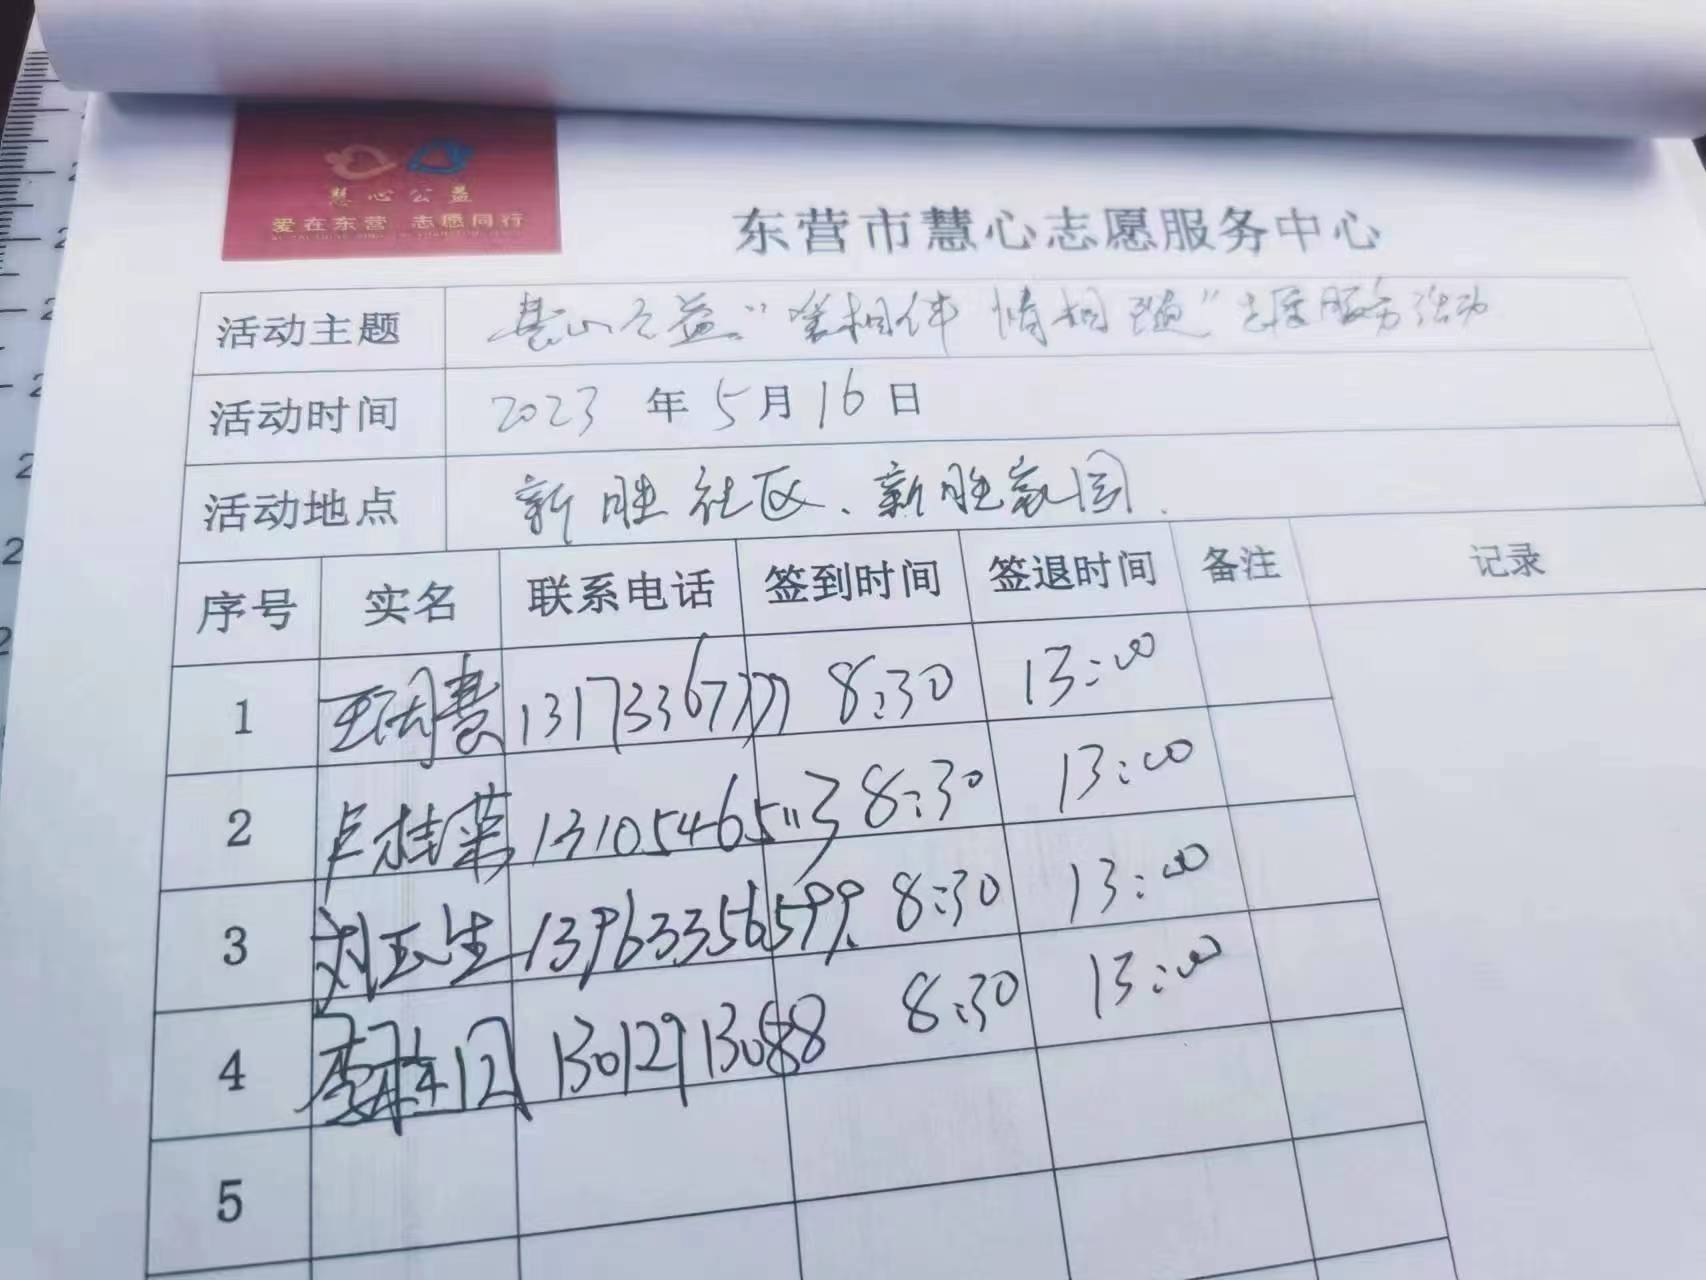 慧心公益
爱在东营 志愿同行
东营市慧心志愿服务中心
活动主题 慧心公益“爱相伴 情相随”志愿服务活动
活动时间 2023 年 5 月 16 日
活动地点 新胜社区、新胜家园.
序号 实名 联系电话 签到时间 签退时间 备注 记录
1 慧 13173367777 8:30 13:00
2 卢桂荣 13105465113 8:30 13:00
3 刘玉生 13963356599 8:30 13:00
4 李 13012913088 8:30 13:00
5